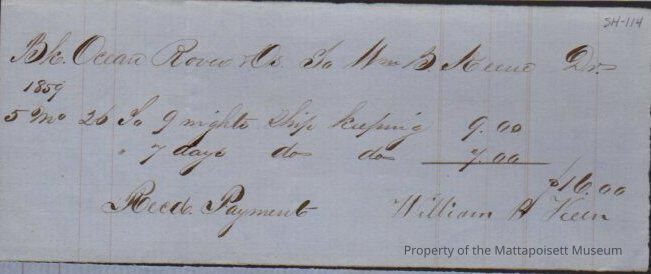 SH-114
Bk. Ocean Rover & Os. To Wm B. Keene Dr.
1859
5 Mo 26 To 9 nights Ship keeping 9.00
" 7 days do do 7.00
$16.00
Recd. Payment William H Keen
Property of the Mattapoisett Museum